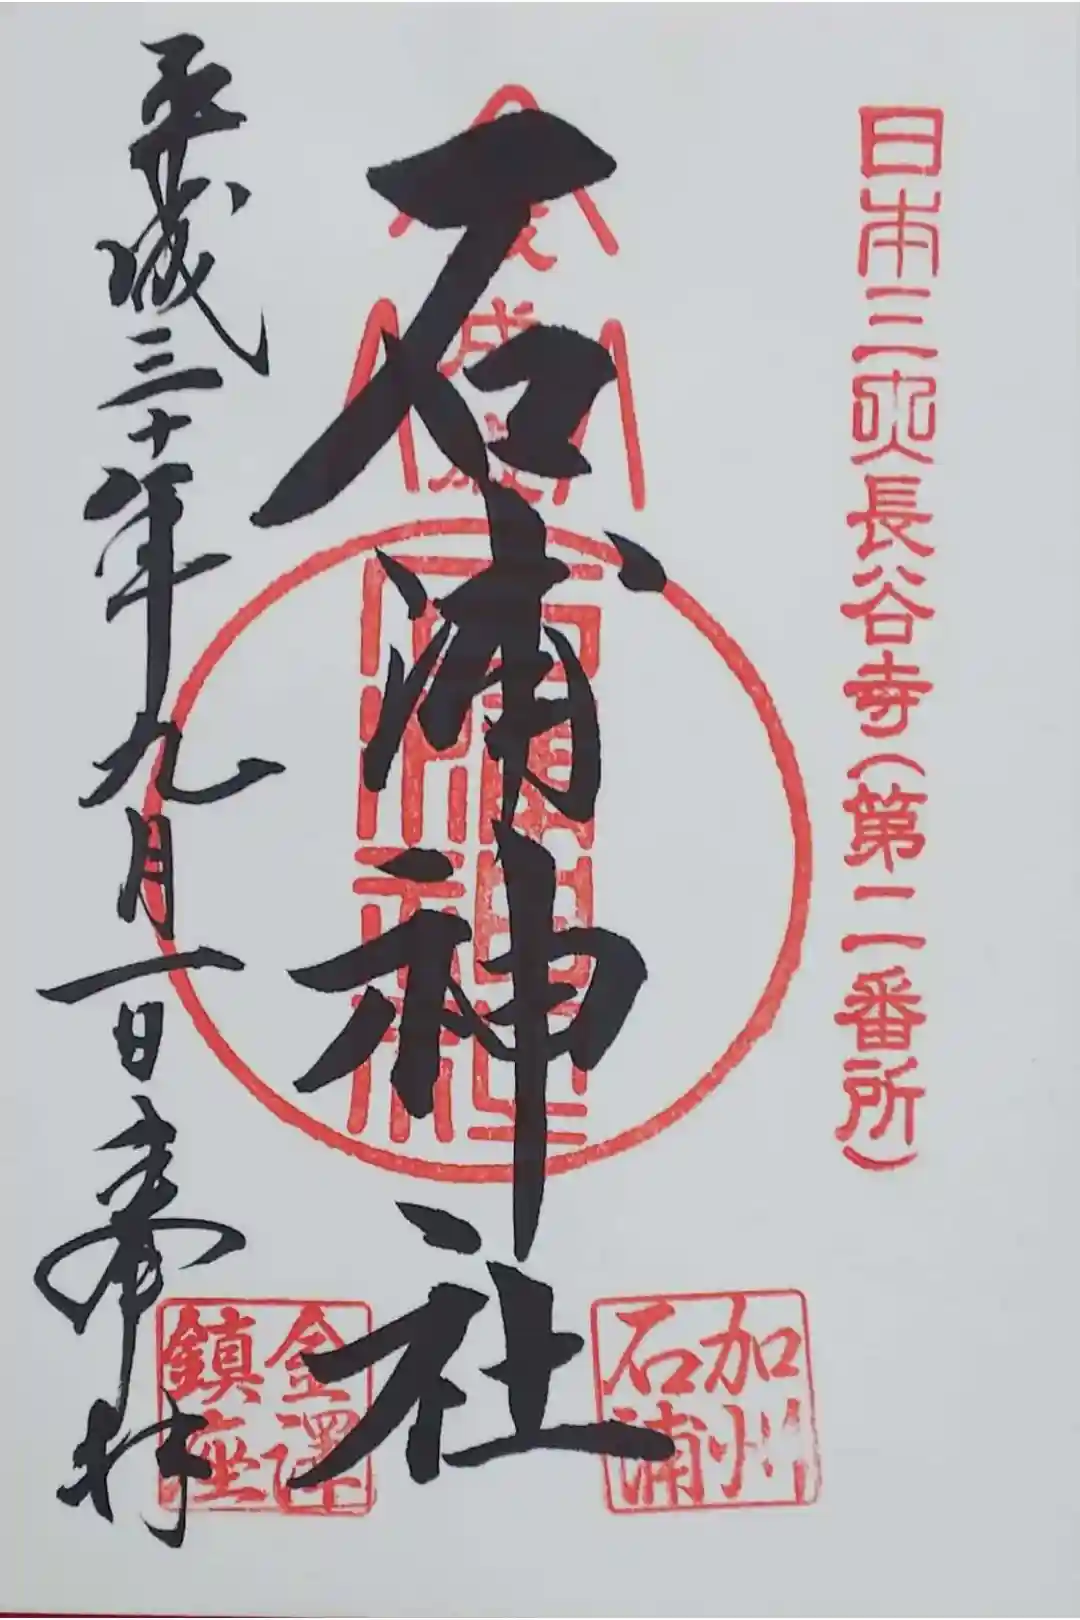 日本三所長谷寺(第二番所)
石浦神社
平成三十年九月一日奉拝
加州
石浦
金澤
鎮座